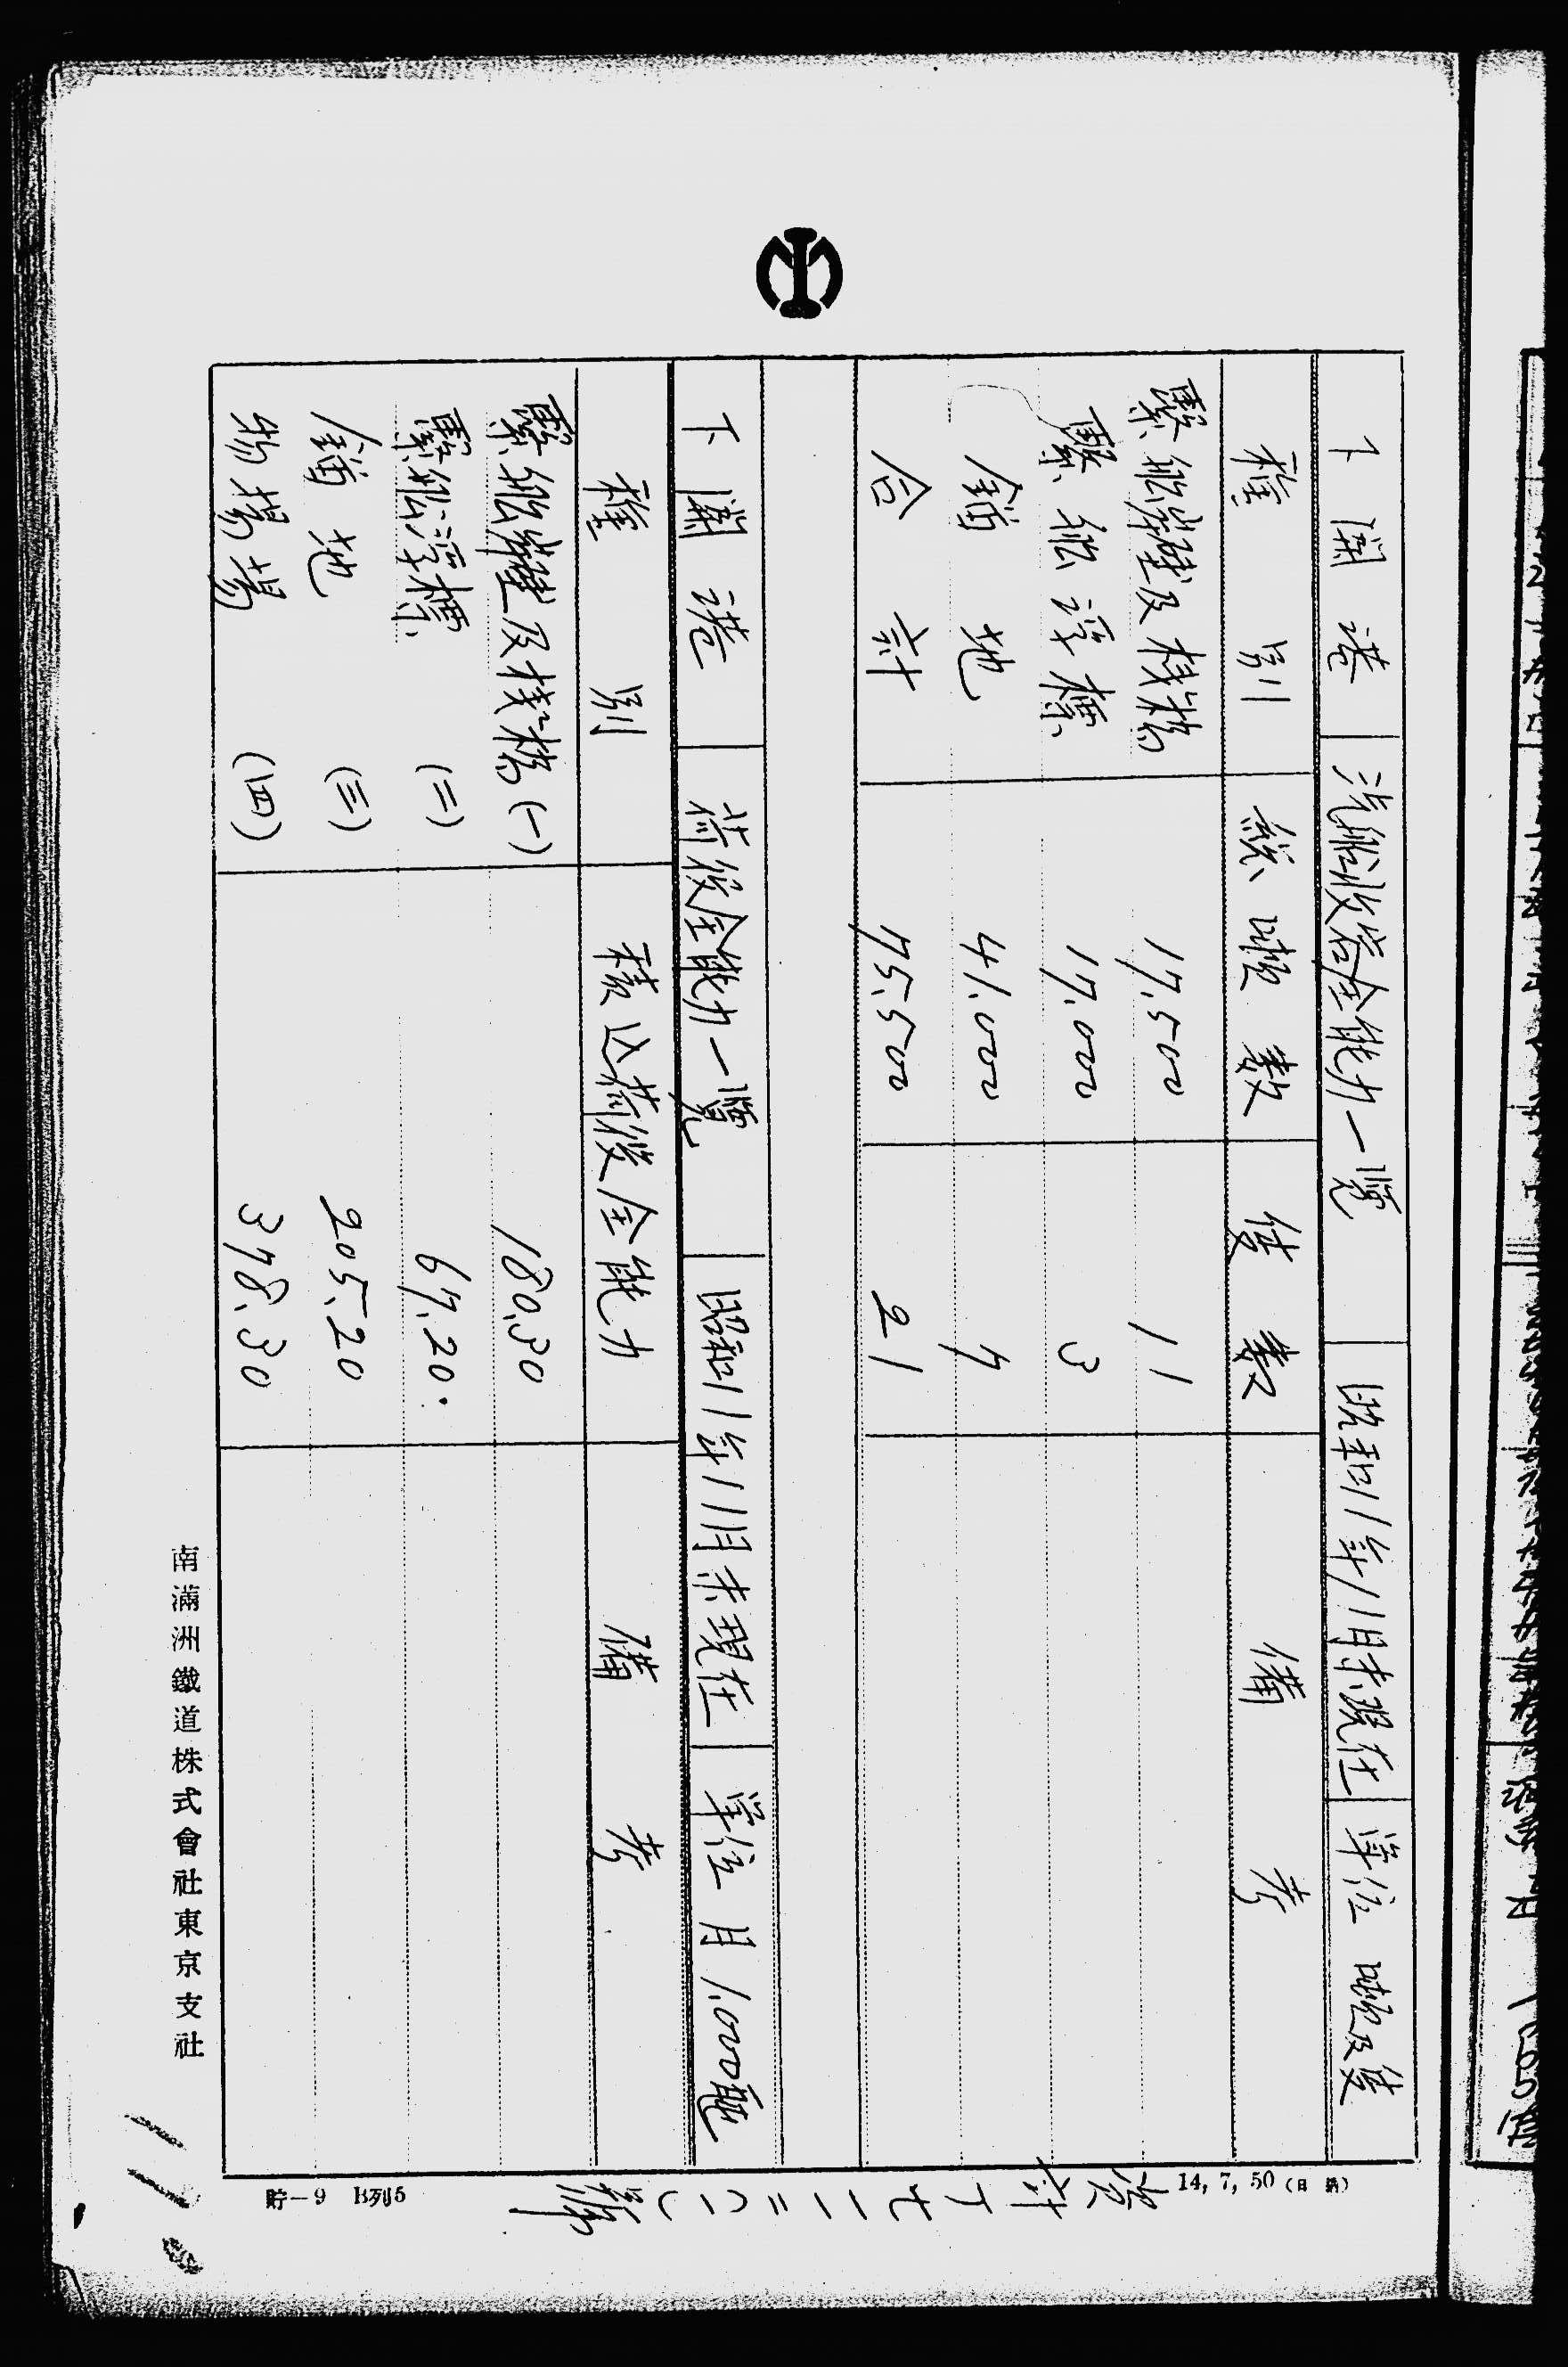 下関港 汽船收容全能力一覧 昭和11年11月末現在 單位 噸及隻
種別 総噸数 隻数 備考
繋船岸壁及棧橋 17,500 11
繋船浮標 17,000 3
錨地 41,000 7
合計 75,500 21
下関港 荷役全能力一覧 昭和11年11月末現在 單位 月1,000瓲
種別 積込荷役全能力 備考
繋船岸壁及棧橋(一) 180.30
繋船浮標(二) 67.20
錨地(三) 205.20
物揚場(四) 378.30
南滿洲鐵道株式會社東京支社
14, 7, 50 (日 納)
貯-9 B列5